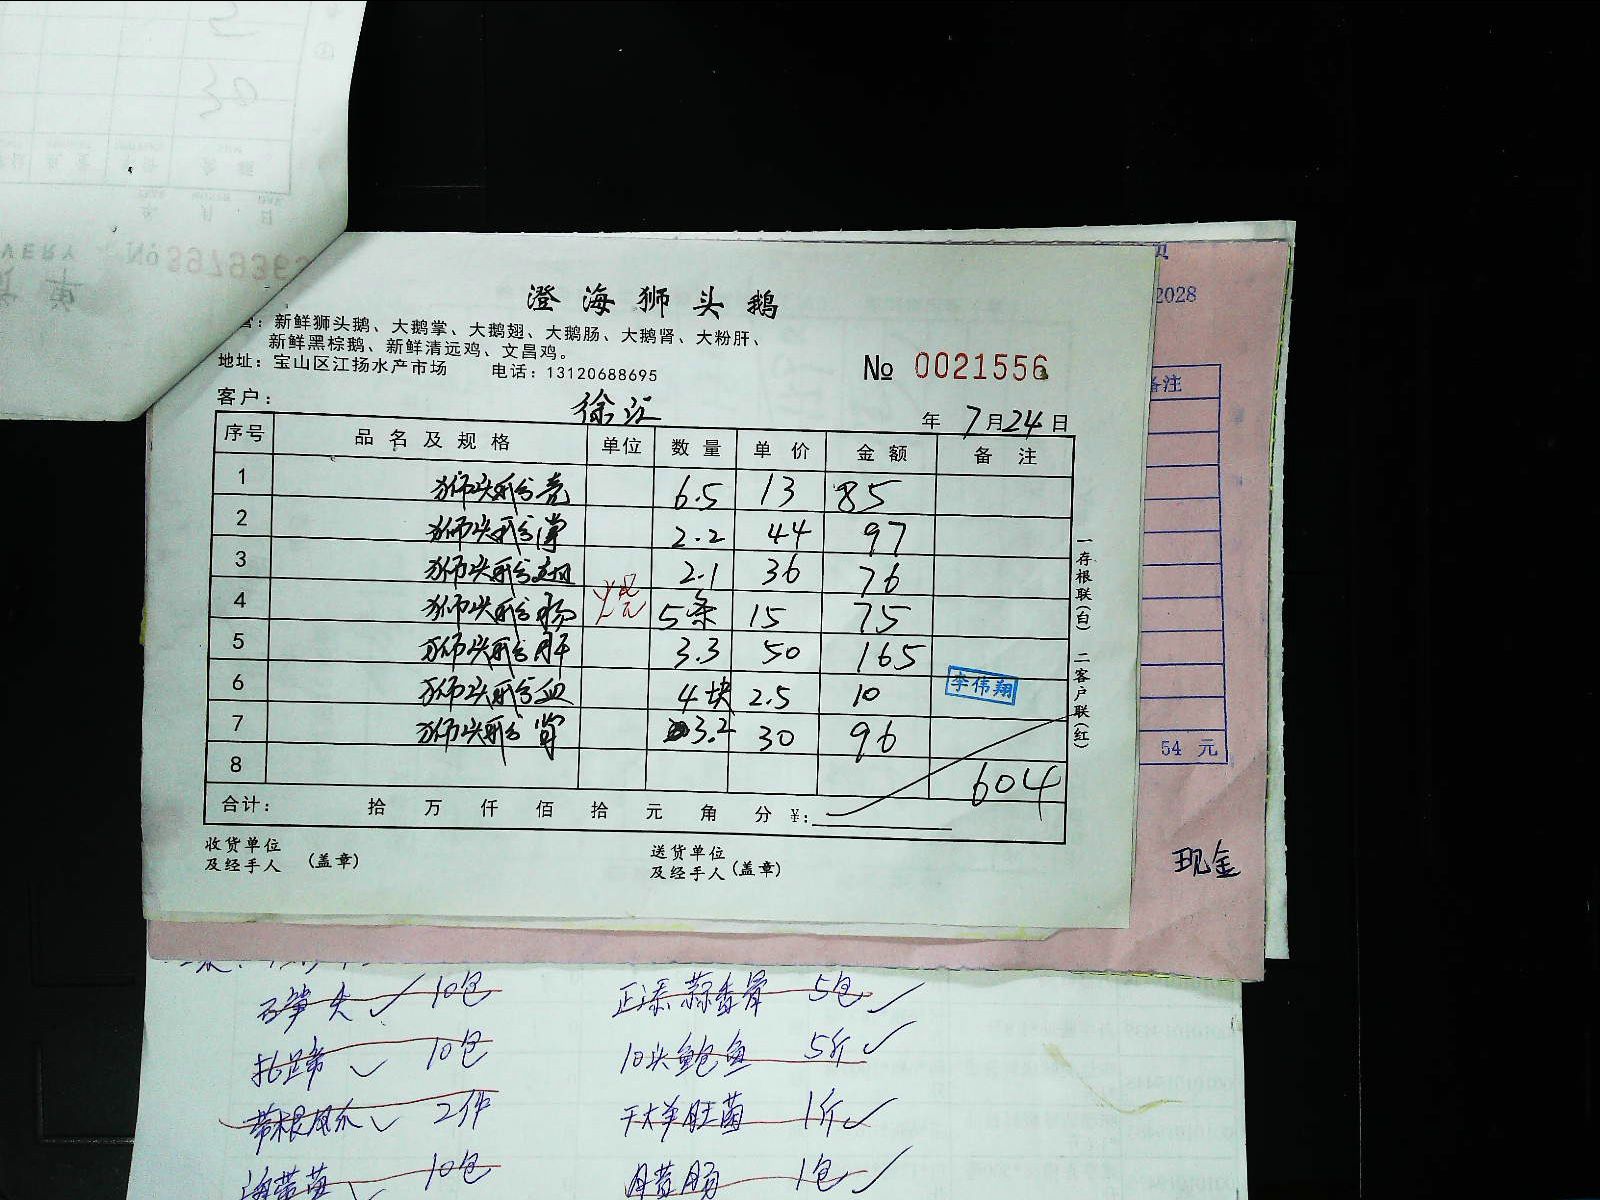 澄海狮头鹅
营：新鲜狮头鹅、大鹅掌、大鹅翅、大鹅肠、大鹅肾、大粉肝、
新鲜黑棕鹅、新鲜清远鸡、文昌鸡。
地址：宝山区江扬水产市场 电话：13120688695
№ 0021556
客户： 徐汇 年 7月24日
序号 品名及规格 单位 数量 单价 金额 备注
1 狮头鹅壳 6.5 13 85
2 狮头鹅掌 2.2 44 97
3 狮头鹅翅 2.1 36 76
4 狮头鹅肠 5条 15 75
5 狮头鹅肝 3.3 50 165
6 狮头鹅血 4块 2.5 10
李伟翔
7 狮头鹅肾 3.2 30 96
8 604
合计： 拾 万 仟 佰 拾 元 角 分 ¥:
收货单位
及经手人 (盖章)
送货单位
及经手人 (盖章)
一存根联(白) 二客户联(红)
2028
备注
54 元
现金
10包
蒜香骨 5包
10包
10头鲍鱼 5斤
2件
1斤
10包
1包